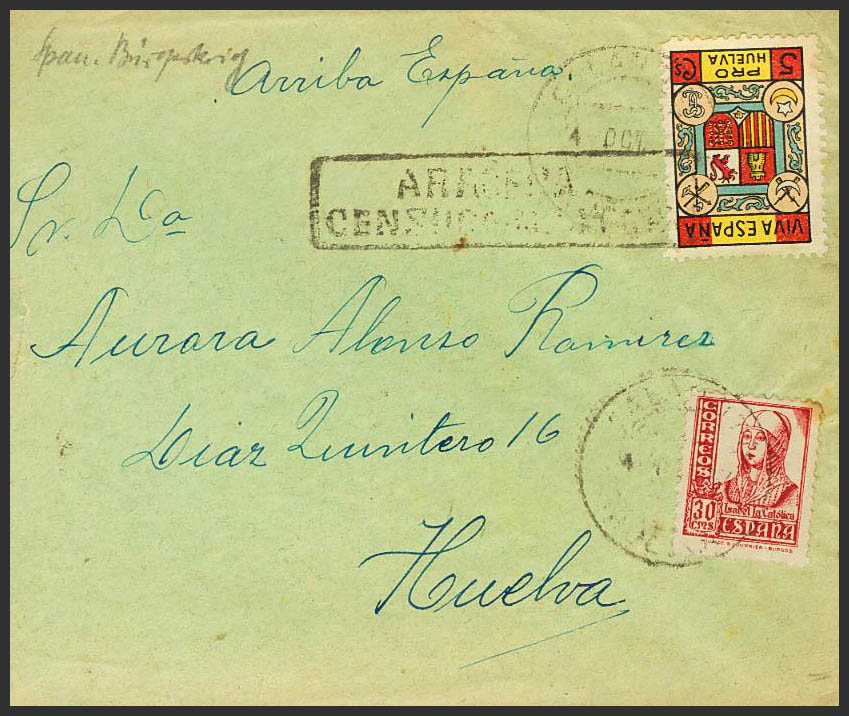 Span. Bürgerkrieg
Arriba España.
5 Cs PRO HUELVA
VIVA ESPAÑA
4 OCT
ARACENA
CENSURA MILITAR
Sr. Da
Aurora Alonso Ramirez
Diaz Quintero 16
Huelva
CORREOS
Isabel la Católica
30 CTMS ESPAÑA
FOURNIER-BURGOS